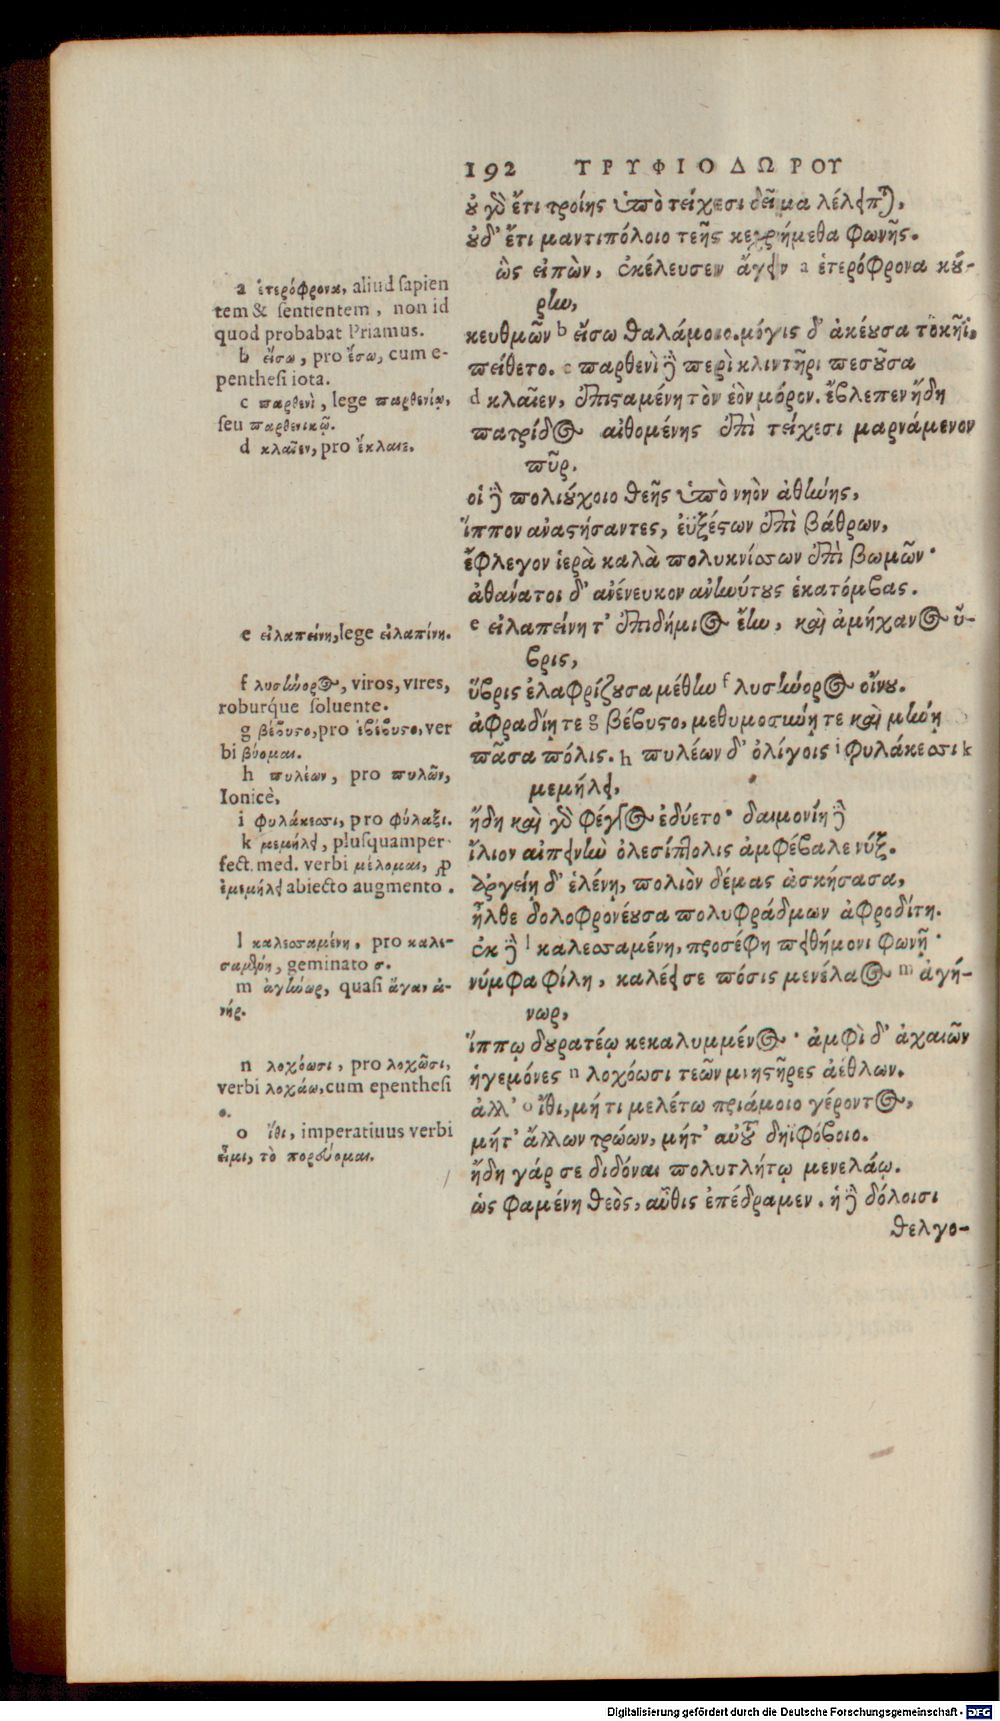 192 ΤΡΥΦΙΟΔΩΡΟΥ
οὐ γὰρ ἔτι τροίης ὑπὸ τείχεσι δεῖμα λέλειπται,
οὐδ' ἔτι μαντιπόλοιο τεῆς κεχρήμεθα φωνῆς.
ὣς εἰπὼν, ἐκέλευσεν ἄγειν a ἑτερόφρονα κού-
ρην,
κευθμῶν b εἴσω θαλάμοιο. μόγις δ' ἀκέουσα τοκῆϊ
πείθετο. c παρθενὶ δὲ περὶ κλιντῆρι πεσοῦσα
d κλαῖεν, ἐπισαμένη τὸν ἑὸν μόρον. ἔβλεπεν ἤδη
πατρίδος αἰθομένης ἐπὶ τείχεσι μαρνάμενον
πῦρ.
οἱ δὲ πολιούχοιο θεῆς ὑπὸ νηὸν ἀθήνης,
ἵππον ἀναστήσαντες, ἐϋξέστων ἐπὶ βάθρων,
ἔφλεγον ἱερὰ καλὰ πολυκνίσσων ἐπὶ βωμῶν·
ἀθάνατοι δ' ἀνένευκον ἀνηνύτους ἑκατόμβας.
e εἰλαπείνη τ' ἐπιδήμιος ἔην, καὶ ἀμήχανος ὕ-
βρις,
ὕβρις ἐλαφρίζουσα μέθην f λυσήνορος οἴνου.
ἀφραδίῃ τε g βέβυστο, μεθυμοσύνῃ τε καὶ μήνῃ
πᾶσα πόλις. h πυλέων δ' ὀλίγοις i φυλάκεσσι k
μεμήλει,
ἤδη καὶ γὰρ φέγγος ἐδύετο· δαιμονίη δὲ
ἴλιον αἰπεινὴν ὀλεσίπτολις ἀμφέβαλε νύξ.
ἀργείῃ δ' ἑλένῃ, πολιὸν δέμας ἀσκήσασα,
ἦλθε δολοφρονέουσα πολυφράδμων ἀφροδίτη.
ἐκ δὲ l καλεσσαμένη, προσέφη πειθήμονι φωνῇ·
νύμφα φίλη, καλέει σε πόσις μενέλαος m ἀγή-
νωρ,
ἵππῳ δουρατέῳ κεκαλυμμένος· ἀμφὶ δ' ἀχαιῶν
ἡγεμόνες n λοχόωσι τεῶν μνηστῆρες ἀέθλων.
ἀλλ' o ἴθι, μή τι μελέτω πριάμοιο γέροντος,
μήτ' ἄλλων τρώων, μήτ' αὐτοῦ δηϊφόβοιο.
ἤδη γάρ σε διδόναι πολυτλήτῳ μενελάῳ.
ὡς φαμένη θεὸς, αὖθις ἐπέδραμεν. ἡ δὲ δόλοισι
θελγο-
a ἑτερόφρονα, aliud sapien
tem & sentientem, non id
quod probabat Priamus.
b εἴσω, pro ἔσω, cum e-
penthesi iota.
c παρθενὶ, lege παρθενίῳ,
seu παρθενικῷ.
d κλαῖεν, pro ἔκλαιε.
e εἰλαπείνη, lege εἰλαπίνη.
f λυσήνορος, viros, vires,
roburque soluente.
g βέβυστο, pro ἐβέβυστο, ver
bi βύομαι.
h πυλέων, pro πυλῶν,
Ionicè.
i φυλάκεσσι, pro φύλαξι.
k μεμήλει, plusquamper
fect. med. verbi μέλομαι, pro
ἐμεμήλει abiecto augmento.
l καλεσσαμένη, pro καλε-
σαμένη, geminato σ.
m ἀγήνωρ, quasi ἄγαν ἀ-
νήρ.
n λοχόωσι, pro λοχῶσι,
verbi λοχάω, cum epenthesi
ο.
o ἴθι, imperatiuus verbi
εἶμι, τὸ πορεύομαι.
Digitalisierung gefördert durch die Deutsche Forschungsgemeinschaft - DFG